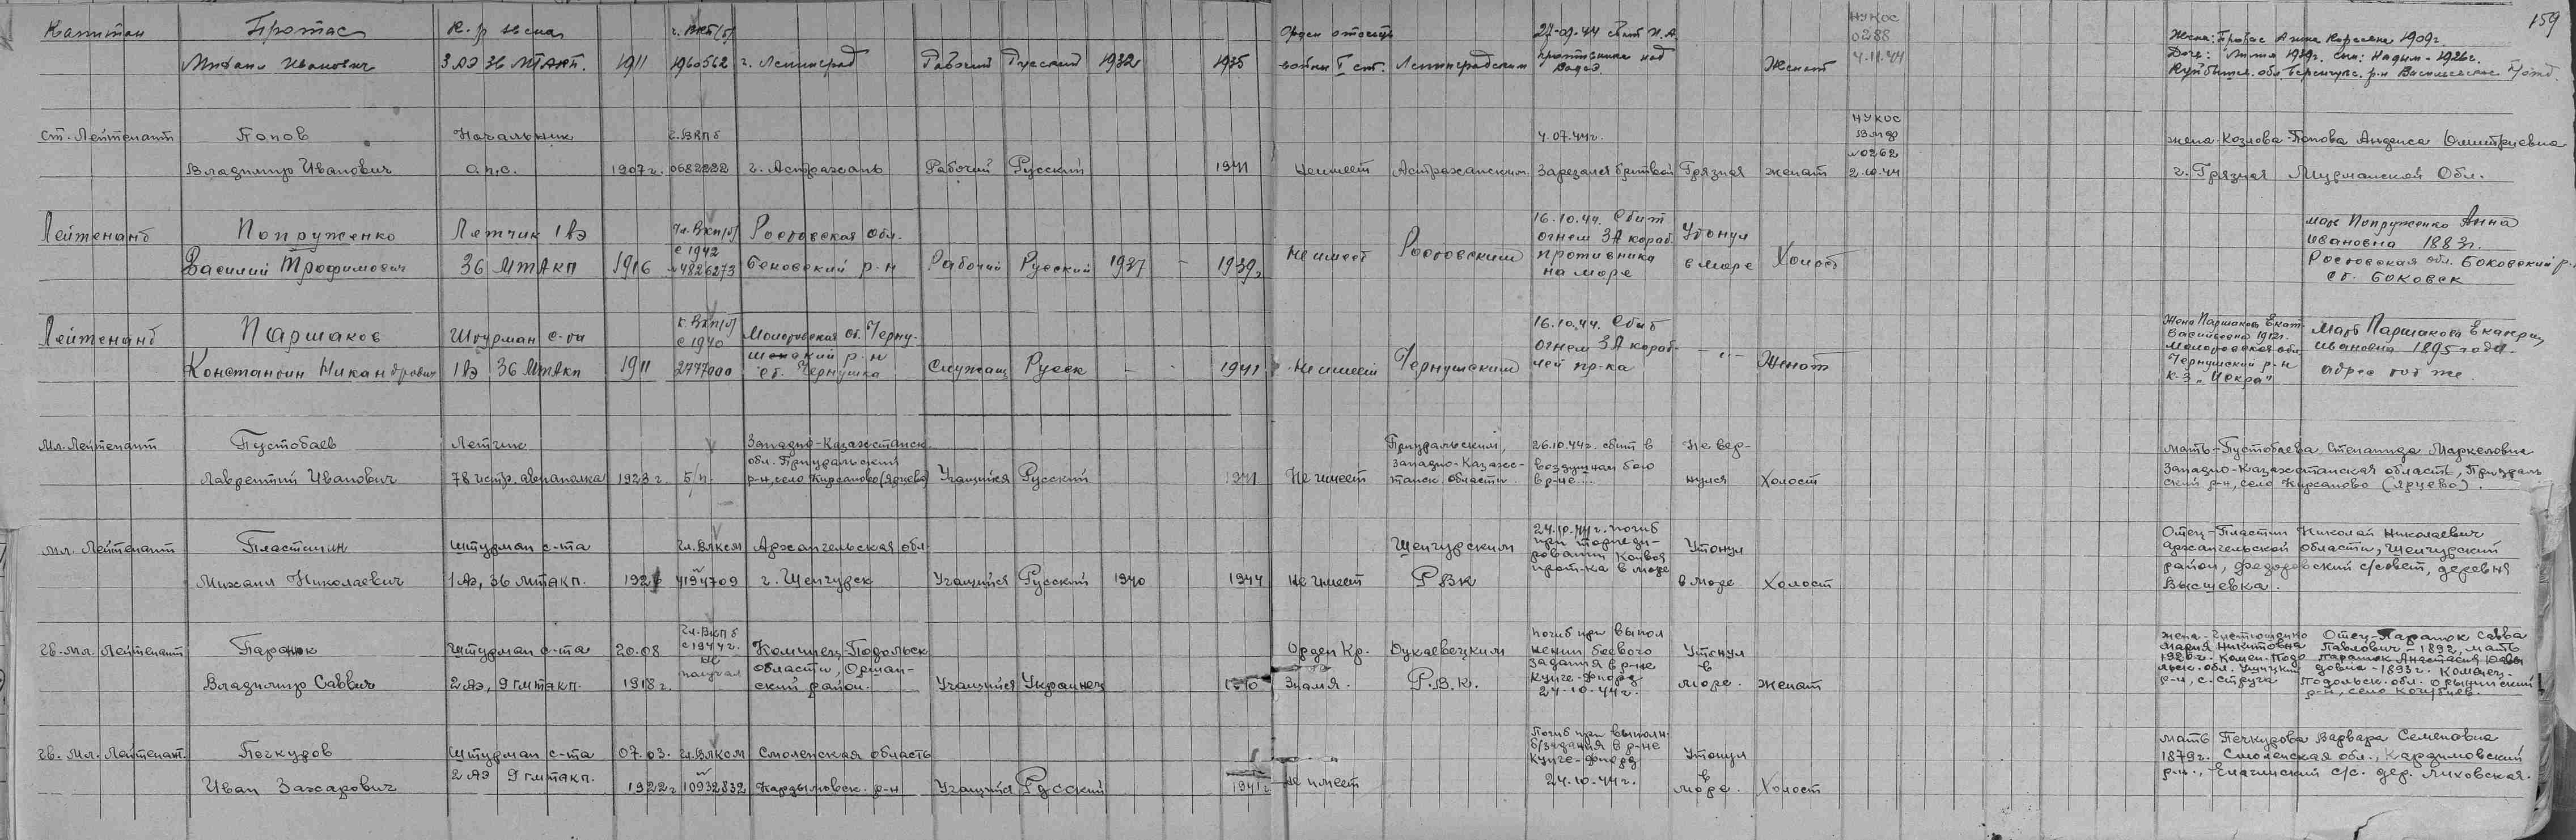 159
Капитан Протас К-р звена ч. ВКП(б) Орден отечеств 27-09-44 сбит И.А. НУКОС Жена: Протас Анна 1909г
0288 Дочь: Лилия 1939г. сын: Надым - 1926г.
Михаил Иванович 3 АЭ 36 МТАКП. 1911 1960562 г. Ленинград Рабочий Русский 1932 1935 войны I ст. Ленинградским противника над водой Женат 4.11.44
Ст. Лейтенант Попов Начальник ч. ВКПб 4.07.44г. НУКОС ВМФ жена-Козлова-Попова Анфиса Дмитриевна
Владимир Иванович а.п.с. 1907г. 0682232 г. Астрахань Рабочий Русский 1941 Не имеет Астраханским Зарезался бритвой Грязная женат №0262 2.10.44 г. Грязная Мурманской Обл.
Лейтенант Попруженко Летчик 1 АЭ Чл. ВКП(б) с 1942 Ростовская обл. 16.10.44. Сбит огнем ЗА кораб. Утонул мать Попруженко Анна
Ивановна 1883г.
Василий Трофимович 36 МТАКП 1916 №4826273 Боковский р-н Рабочий Русский 1937 - 1939г Не имеет Ростовским противника на море в море Холост Ростовская обл. Боковский р.
ст. Боковск
Лейтенант Паршаков Штурман с-та к. ВКП(б) с 1940 Молотовская об. Черну- 16.10.44. Сбит огнем ЗА кораб- Жена Паршакова Екат. 1912г. Мать Паршакова
Константин Никандрович 1 АЭ 36 МТАКП 1911 2777000 шенский р-н ст. Чернушка Служащ Русск - - 1941 Не имеет Чернушским лей пр-ка - " - Женат Молотовская обл. Чернушский р-н к-з "Искра" Ивановна 1895 года. адрес тот же.
Мл. Лейтенант Пустобаев Летчик Западно-Казахстанск. обл. Приуральский Приуральским, 26.10.44г. сбит в Не вер- мать-Пустобаева Степанида Маркеловна
Лаврентий Иванович 78 истр. авиаполка 1923г. Б/п. р-н, село Кирсаново (Ярцево) Учащийся Русский 1941 Не имеет Западно-Казахс- танск области воздушном бою в р-не... нулся Холост Западно-Казахстанская область, Приураль
ский р-н, село Кирсаново (Ярцево).
мл. Лейтенант Пластинин штурман с-та Чл. ВЛКСМ Архангельская обл Шенгурским 24.10.44г. погиб при торпеди- ровании Конвоя Утонул Отец-Пластин Николай Николаевич
Архангельской области, Шенгурский
Михаил Николаевич 1 АЭ, 36 МТАКП. 192 4194709 г. Шенгурск Учащийся Русский 1940 1944 Не имеет РВК прот-ка в море в море Холост район, Федоровский с/совет, деревня
Высшевка.
Гв. мл. Лейтенант Паранюк Штурман с-та 20.08 Чл. ВКПб с 1944г. Каменец-Подольск Орден Кр. Дунаевецким погиб при выпол нении боевого задания в р-не Утонул жена - Мария Никитовна Отец-Паранюк Савва Павлович - 1892, мать
Владимир Саввич 2 АЭ, 9 гмтакп. 1918г. не получал области, Орын- ский район. Учащийся Украинец Знамя. Р.В.К. Кунге-фиорд 24.10.44г. в море. женат 1920г. Камен.-Подо льск. обл. р-н, с. Струга Паранюк Анастасия 1893г. Каменец-
Подольск. обл. Орынинский
р-н, село Кочубиев.
Гв. мл. Лейтенант. Печкуров Штурман с-та 07.03. чл. ВЛКСМ Смоленская область Погиб при выполн. б/задания в р-не Кунге-фиорд Утонул мать Печкурова Варвара Семеновна
Иван Захарович 2 АЭ 9 гмтакп. 1922г 10932832 Кардымовск. р-н Учащийся Русский 1941г Не имеет 24.10.44г. в море. Холост 1879г. Смоленская обл., Кардимовский
р-н., с/с. дер. Лиховская.